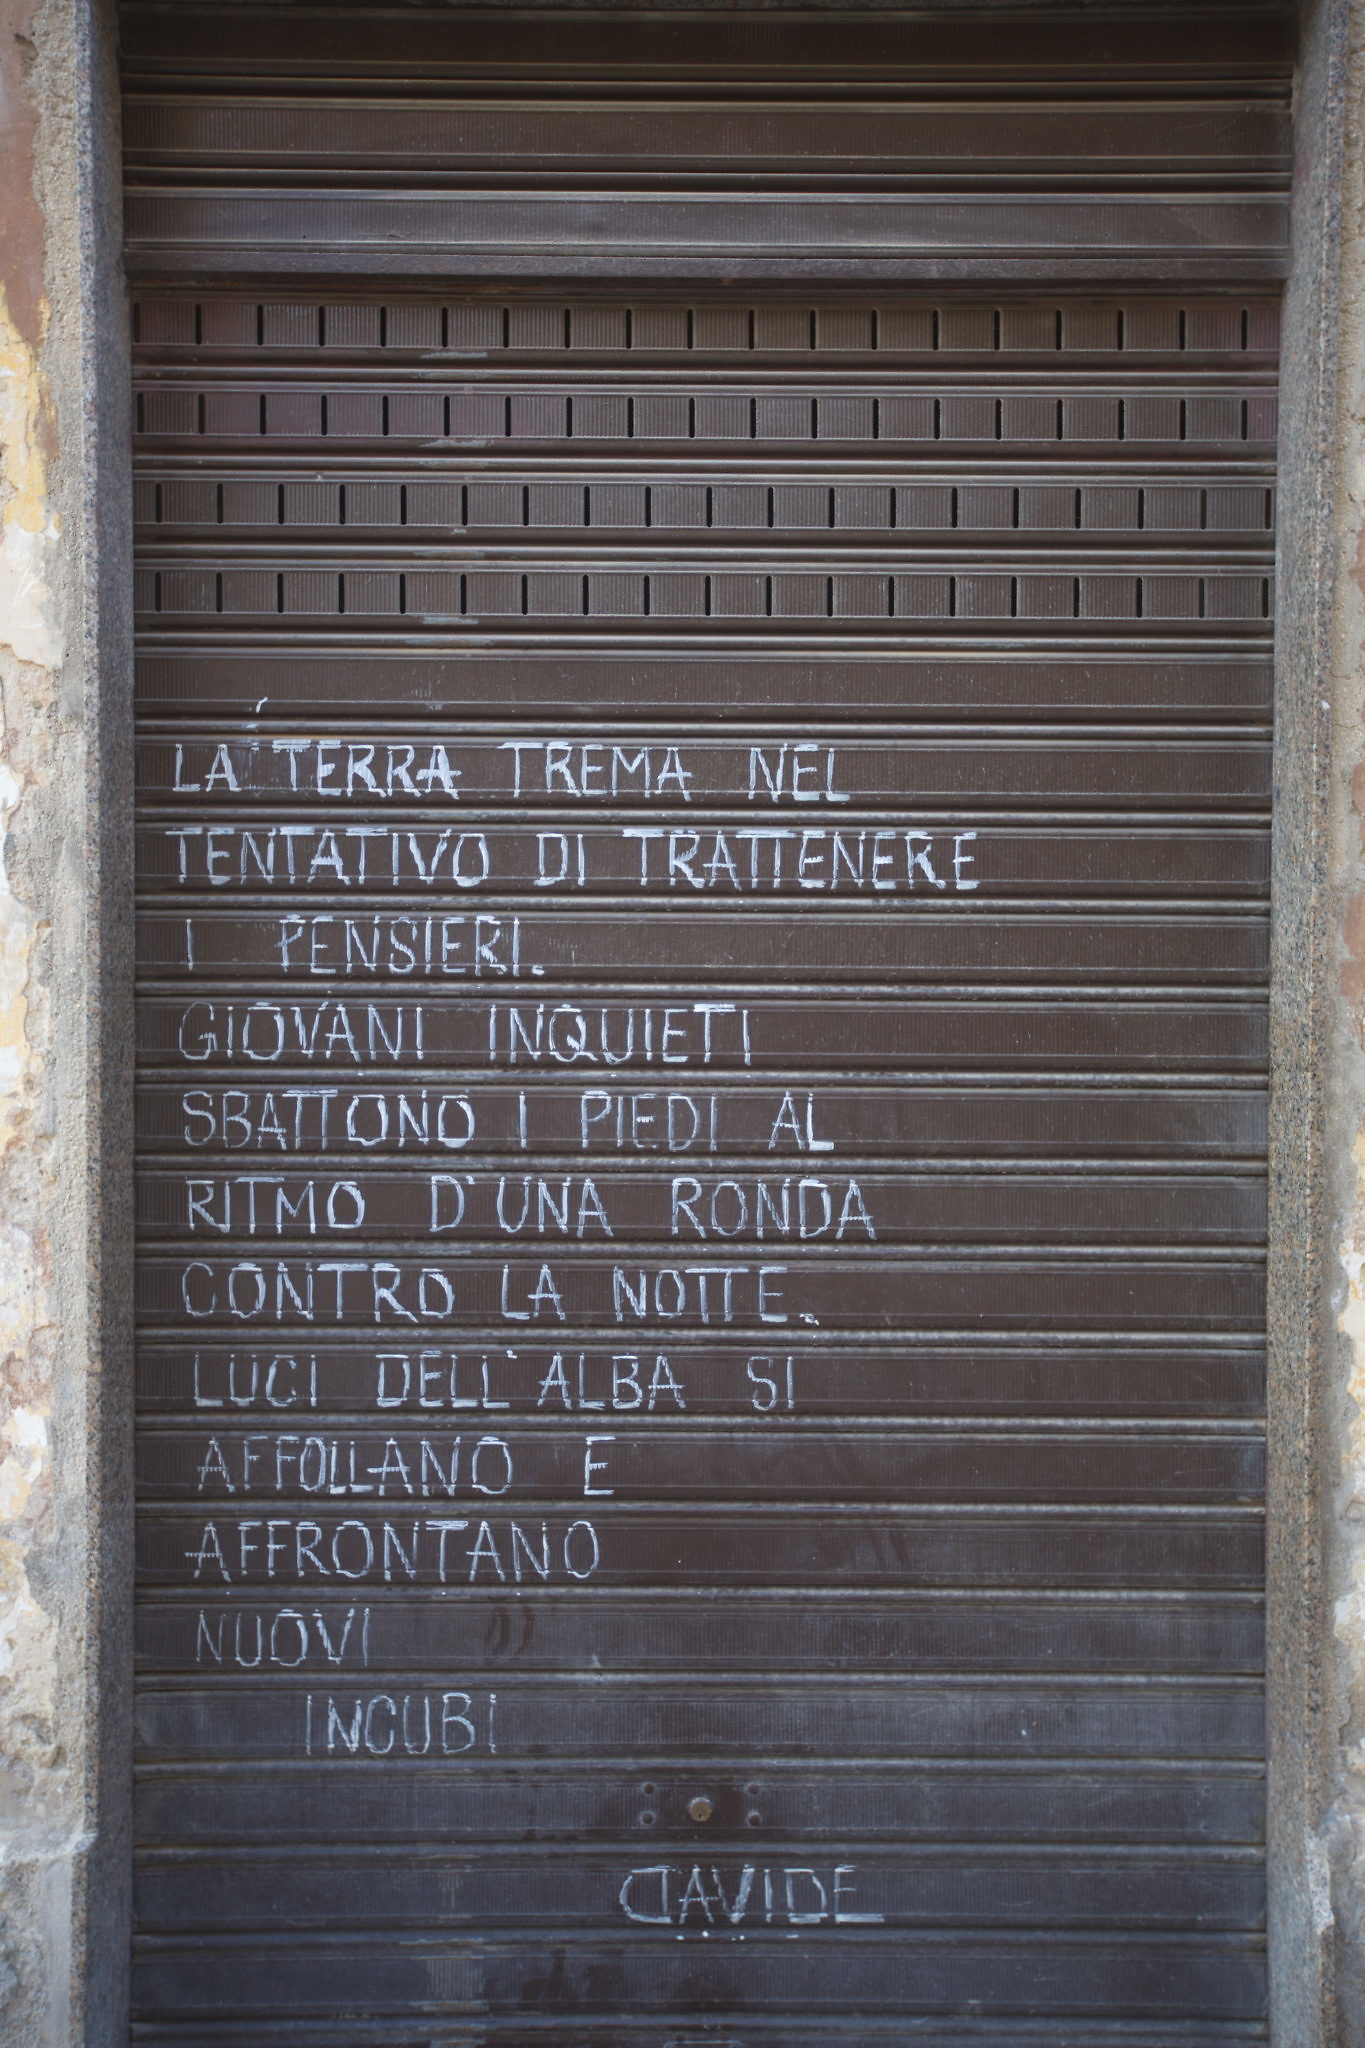 LA TERRA TREMA NEL
TENTATIVO DI TRATTENERE
I PENSIERI.
GIOVANI INQUIETI
SBATTONO I PIEDI AL
RITMO D'UNA RONDA
CONTRO LA NOTTE.
LUCI DELL'ALBA SI
AFFOLLANO E
AFFRONTANO
NUOVI
INCUBI
DAVIDE